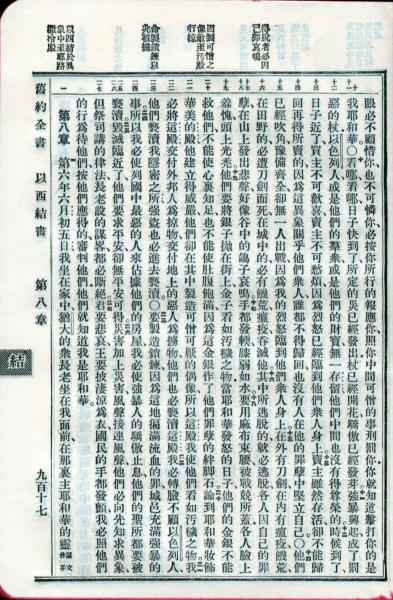 得脫者必因
己罪哀鳴
因製可憎之
像敵至污殿
行掠
命製鎖鍊以
兆被擄
以西結於異
象中至耶路
撒冷殿
眼必不顧惜你也不可憐你必按你所行的報應你照你中間可憎的事刑罰你你就知道擊打你的是
我耶和華○看哪看哪日子快到了所定的災已經發出杖已經開花驕傲已經發芽強暴興起成了罰
惡的杖以色列人或是他們的羣衆或是他們的財寶無一存留他們中間也沒有得尊榮的時候到了
日子近了買主不可歡喜賣主不可愁煩因為烈怒已經臨到他們衆人身上賣主雖然存活卻不能歸
回再得所賣的因為這異象關乎他們衆人誰都不得歸回也沒有人在他的罪孽中堅立自己○他們
已經吹角豫備齊全卻無一人出戰因為我的烈怒臨到他們衆人身上在外有刀劍在內有瘟疫饑荒
在田野的必遭刀劍而死在城中的必有饑荒瘟疫吞滅他其中所逃脫的就必逃脫各人因自己的罪
孽在山上發出悲聲好像谷中的鴿子哀鳴手都發軟膝弱如水要用麻布束腰被戰兢所蓋各人臉上
羞愧頭上光禿他們要將銀子拋在街上金子看如污穢之物當耶和華發怒的日子他們的金銀不能
救他們不能使心裏知足也不能使肚腹飽滿因為這金銀作了他們罪孽的絆脚石論到耶和華妝飾
華美的殿他建立得威嚴他們卻在其中製造可憎可厭的偶像所以這殿我使他們看如污穢之物我
必將這殿交付外邦人為掠物交付地上的惡人為擄物他們也必褻瀆這殿我必轉臉不顧以色列人
他們褻瀆我隱密之所強盜也必進去褻瀆○要製造鎖鍊因為這地徧滿流血的罪城邑充滿強暴的
事所以我必使列國中最惡的人來佔據他們的房屋我必使強暴人的驕傲止息他們的聖所都要被
褻瀆毀滅臨近了他們要求平安卻無平安可得災害加上災害風聲接連風聲他們必向先知求異象
但祭司講的律法長老設的謀略都必斷絕君要悲哀王要披淒涼為衣國民的手都發顫我必照他們
的行為待他們按他們應得的審判他們他們就知道我是耶和華
第八章 第六年六月初五日我坐在家中猶大的衆長老坐在我面前在那裏主耶和華的靈原文作手
舊約全書 以西結書 第八章 九百十七
結